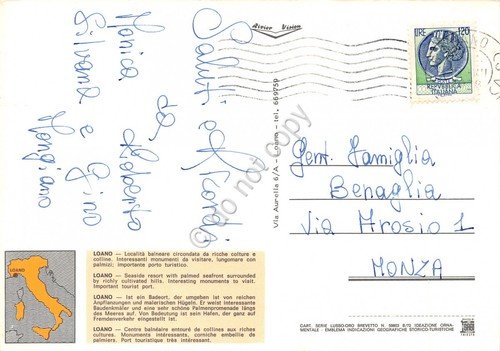 Saluti e Ricordi
da Roberta
Monica
Silvana e Gina
River Vision
Via Aurelia 6/A Loano - tel. 669759
LIRE 120
REPUBBLICA
ITALIANA
Gent. Famiglia
Benaglia
Via Arosio 1
MONZA
do not copy
LOANO
LOANO — Località balneare circondata da ricche colture e
colline. Interessanti monumenti da visitare, lungomare con
palmizi; importante porto turistico.
LOANO — Seaside resort with palmed seafront surrounded
by richly cultivated hills. Interesting monuments to visit.
Important tourist port.
LOANO — Ist ein Badeort, der umgeben ist von reichen
Anpflanzungen und malerischen Hügeln. Er weist interessante
Baudenkmäler und eine sehr schöne Palmenpromenade langs
des Meeres auf. Von Bedeutung ist sein Hafen, der ganz auf
Fremdenverkehr eingestellt ist.
LOANO — Centre balnéaire entouré de collines aux riches
cultures. Monuments intéressants, corniche embellie de
palmiers. Port touristique très intéressant.
CART. SERIE LUSSO-ORO BREVETTO N. 59963 B/72 IDEAZIONE ORNA-
MENTALE - EMBLEMA INDICAZIONI GEOGRAFICHE STORICO-TURISTICHE